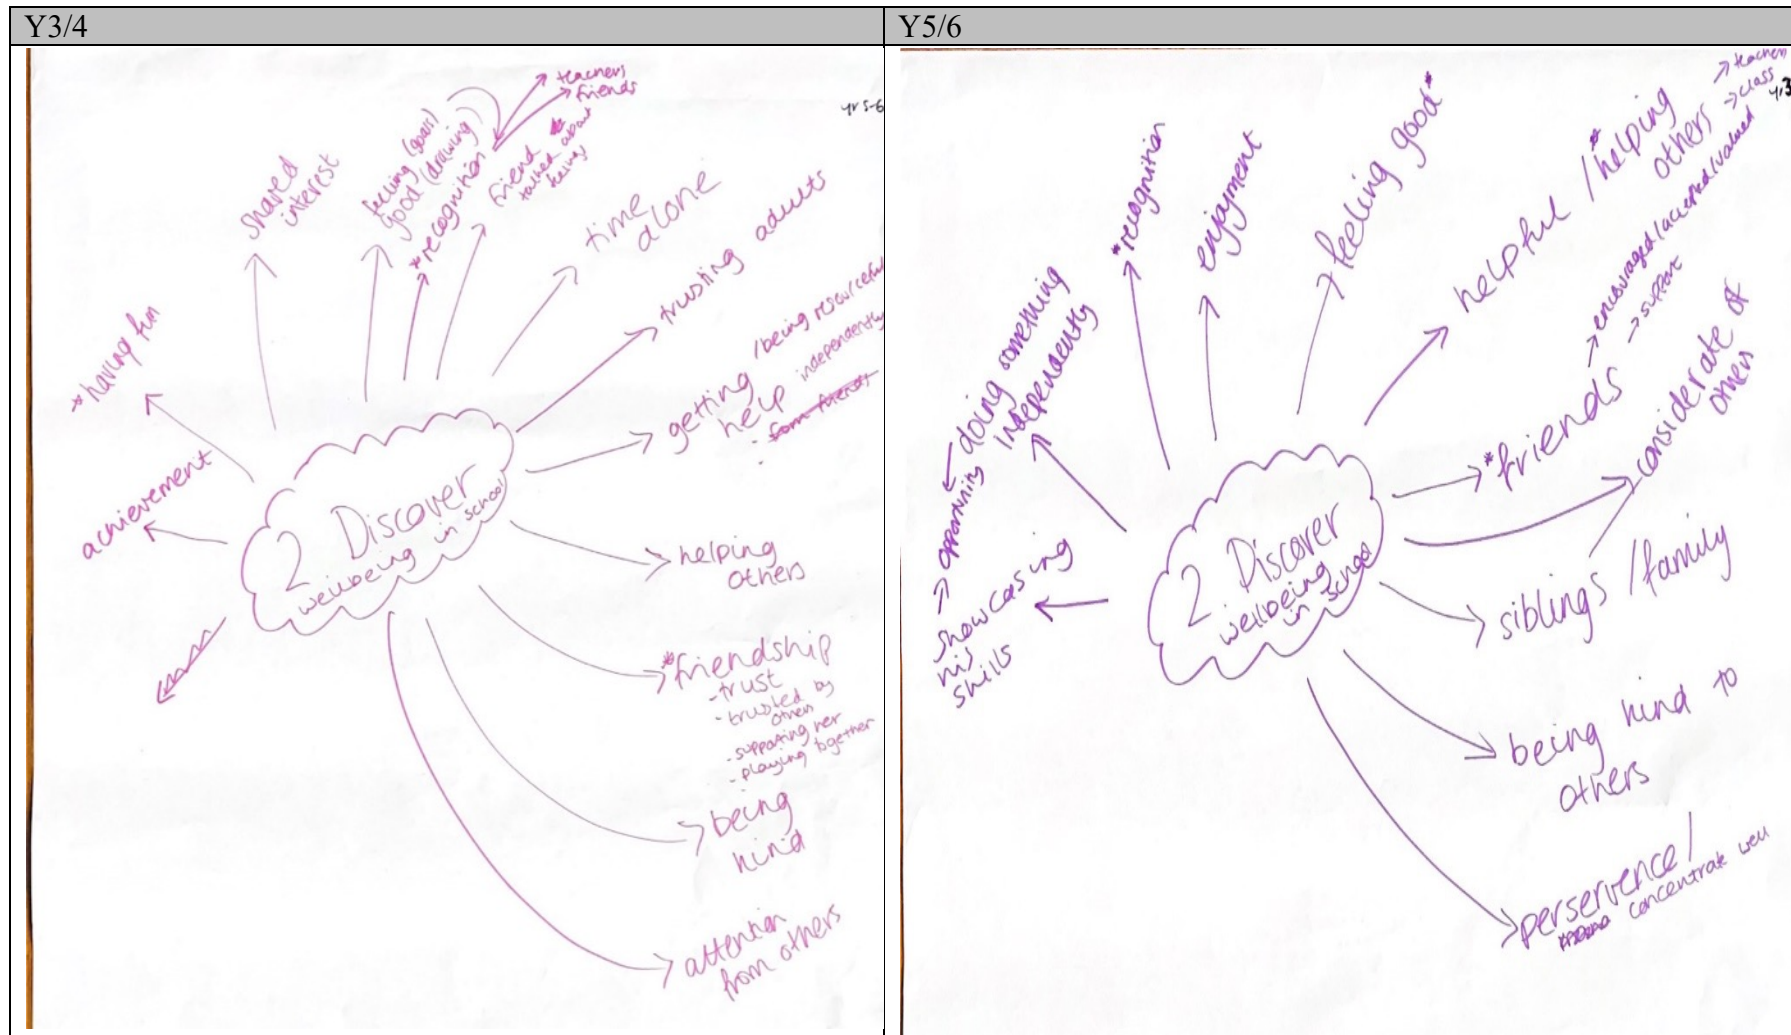 Y3/4
yr 5-6
* having fun
achievement
shared
interest
feeling (goal)
good (drawing)
* recognition
teachers
friends
friend
talked about
time
alone
trusting adults
getting /being resourceful
help independently
- from friends
helping
others
* friendship
- trust
- trusted by
others
- supporting her
- playing together
being
kind
attention
from others
2 Discover
wellbeing in school
Y5/6
yr 3
showcasing
his
skills
opportunity
doing something
independently
* recognition
enjoyment
feeling good *
helpful / * helping
others
teachers
class
* friends
encouraged/accepted/valued
support
considerate of
others
siblings /family
being kind to
others
perservence/
concentrate well
2 Discover
wellbeing
in school